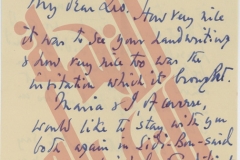 My dear Leo. How very nice
it was to see your handwriting
& how very nice too was the
invitation which it brought.
Maria & I, of course,
would like to stay with you
both again in Sidi-Bou-Said